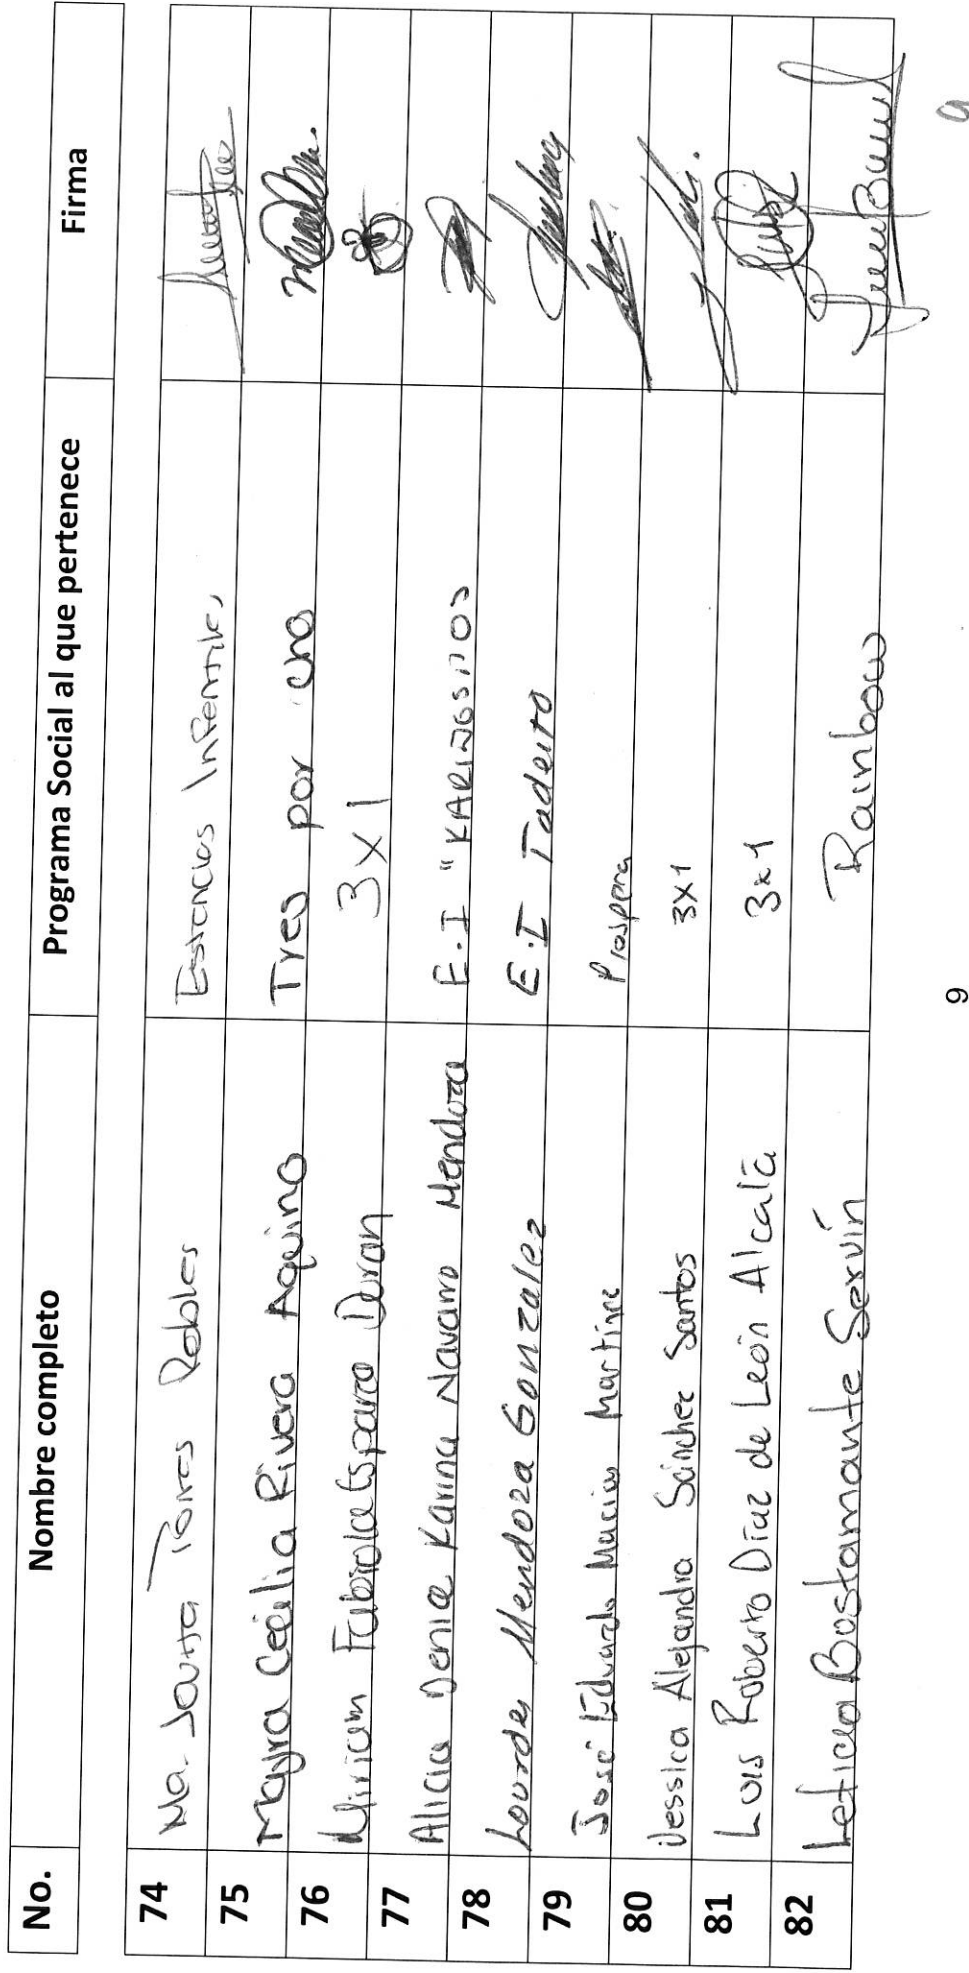 No. Nombre completo Programa Social al que pertenece Firma
74 Ma. Torres Robles Estancias Infantiles
75 Mayra Cecilia Rivera Aquino Tres por uno
76 Miriam Fabiola Esparza Duran 3x1
77 Alicia Denice Karina Navarro Mendoza E.I "KARIÑOSITOS
78 Lourdes Mendoza Gonzalez E.I Tadeito
79 José Eduardo Macias Martínez Prospera
80 Jessica Alejandra Sánchez Santos 3x1
81 Luis Roberto Díaz de León Alcalá 3x1
82 Leticia Bustamante Servín Rainbow
9